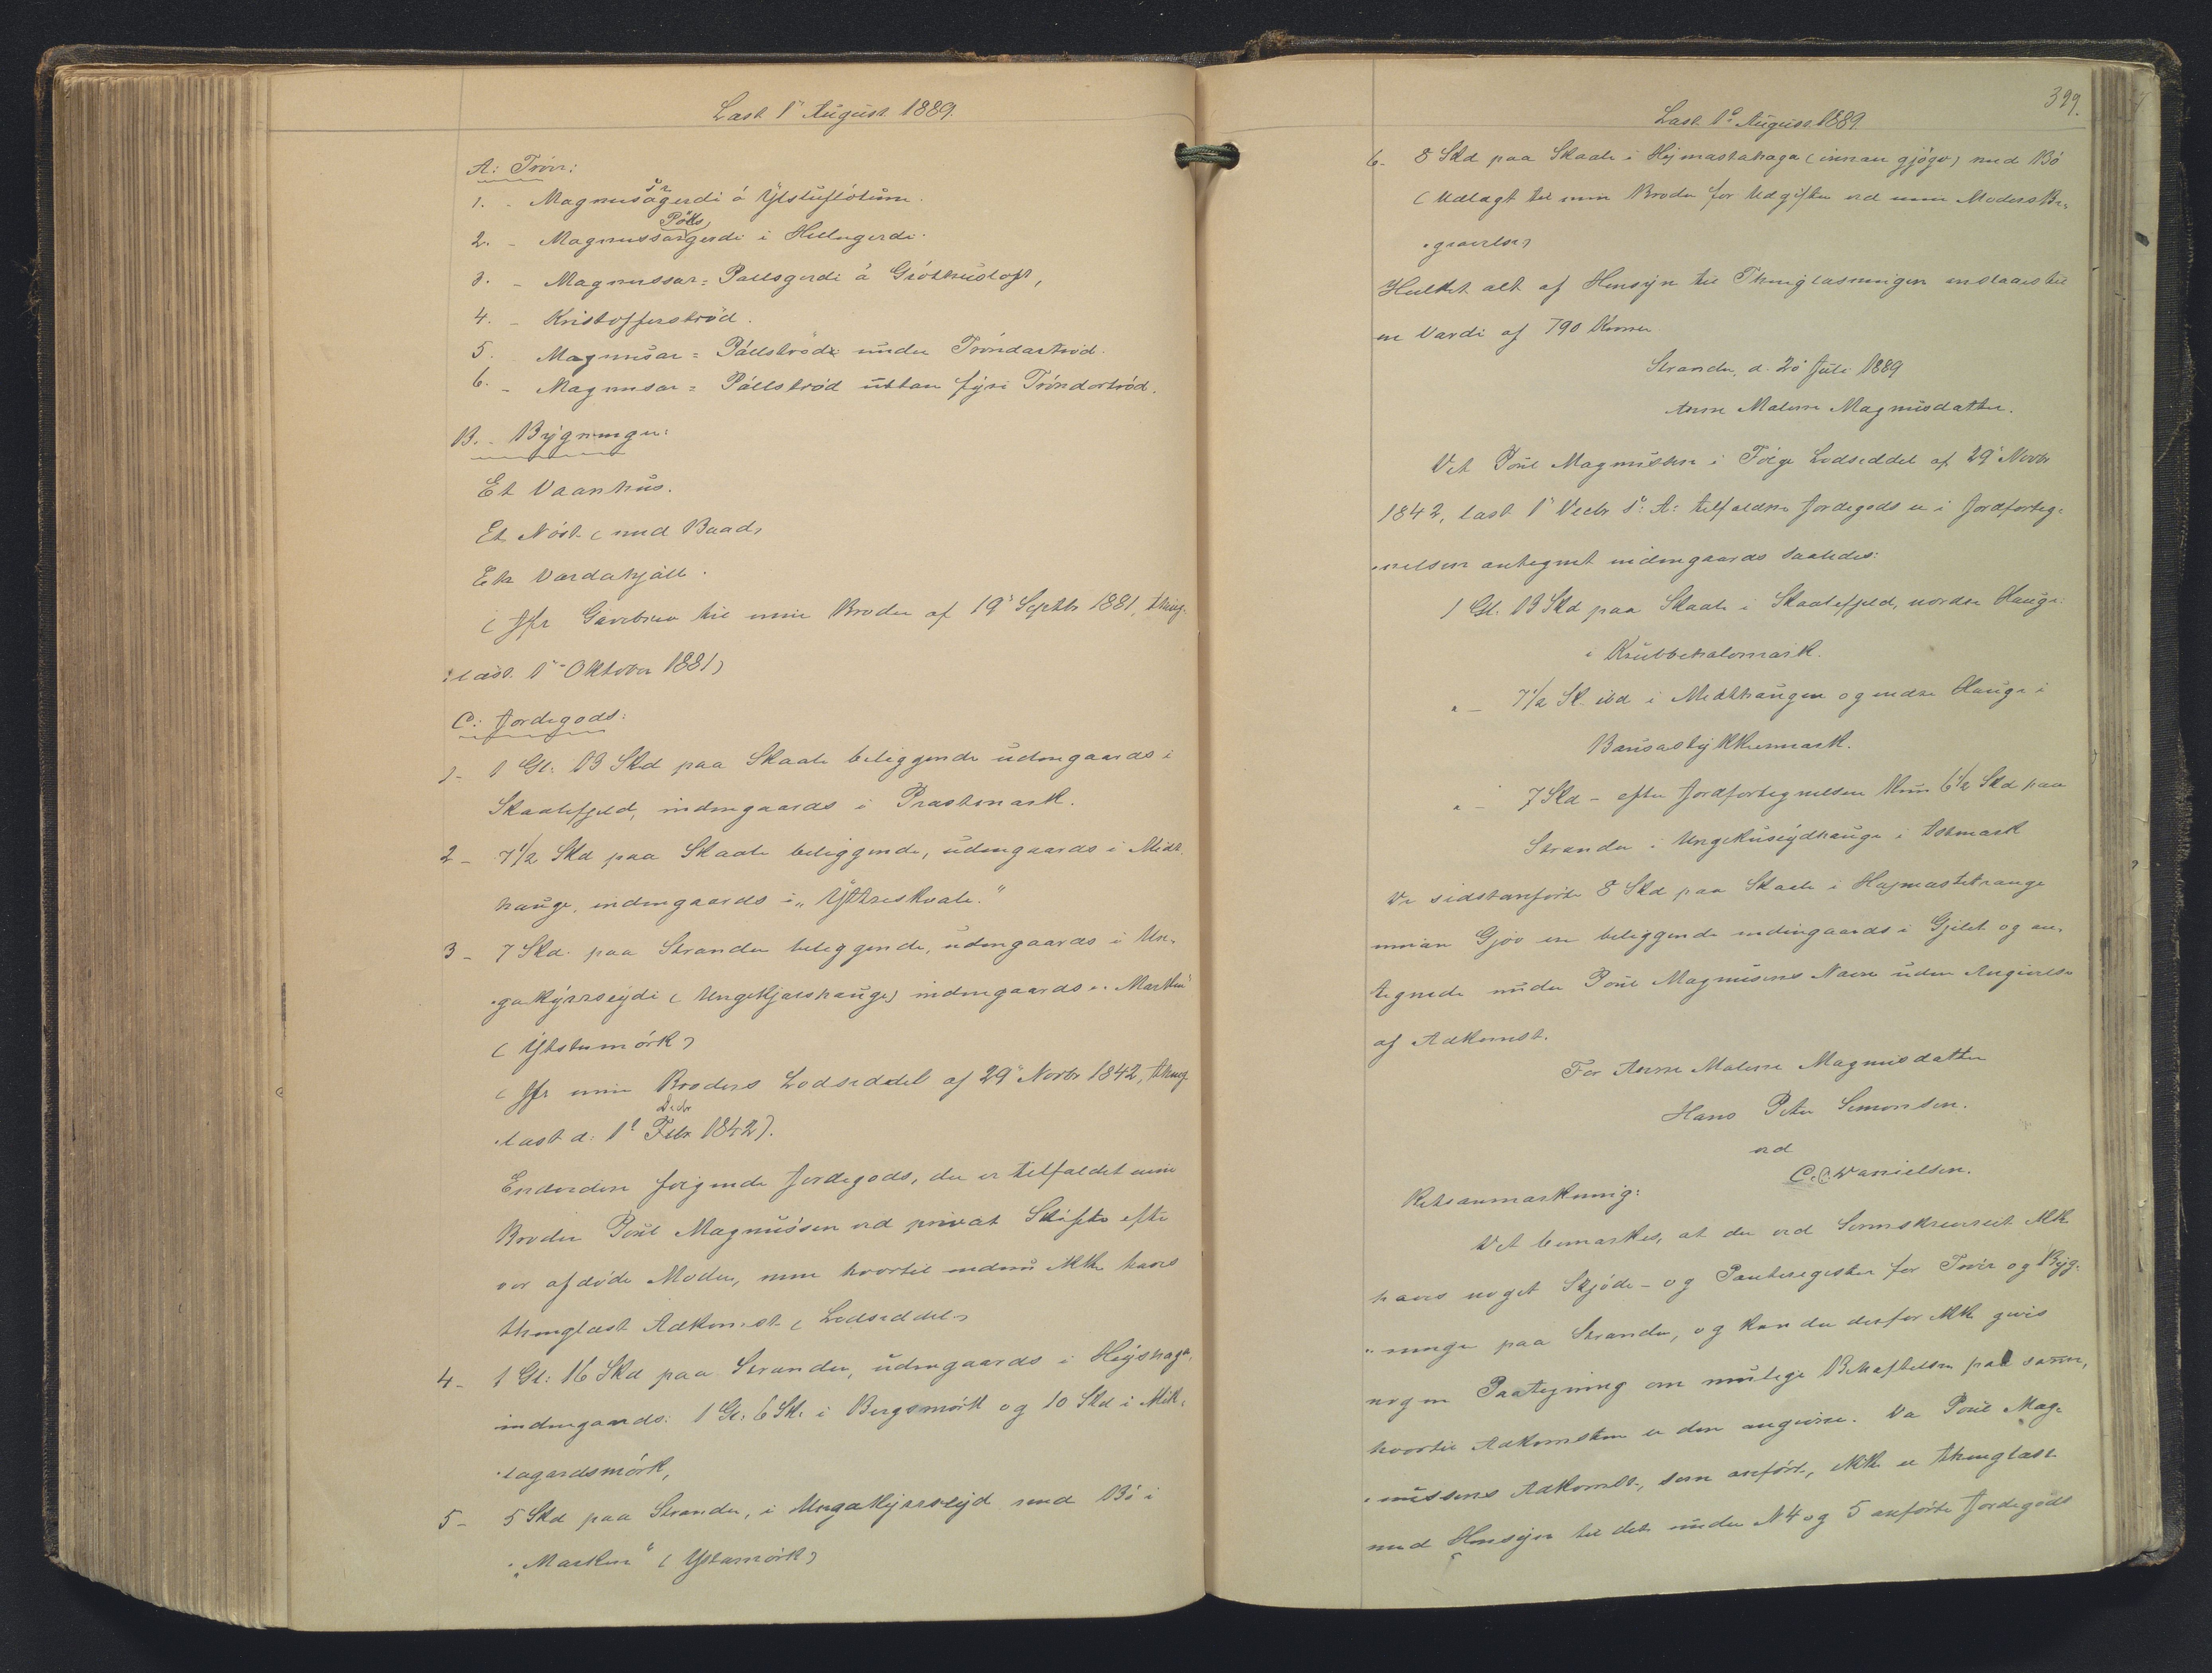 Læst 1ª August 1889.
A: Tróir:
1. - Magnusargerdi á Ytstuflötum.
2. - Magnussar Páls gerdi i Hellugerdi.
3. - Magnussar= Pallsgerdi á Gróthusloft,
4. - Kristofferströd.
5. Magnusar= Pállströd under Tróndartröd.
6. - Magnusar= Pállströd uttan fyri Tróndartröd.
B. - Bygninger:
Et Vaanhus.
Et Nóst (med Baad)
Et Vardahjall.
(Jfr Gavebrev til min Broder af 19ª Septbr 1881, thing-
læst 1ª Oktober 1881)
C: Jordegods:
1- 1 Gl: 13 Skd paa Skaale beliggende udengaards i
Skaalefjeld, indengaards i Præstemark.
2- 7 1/2 Skd paa Skaale beliggende, udengaards i Midt-
hauge, indengaards i "Yttreskaale."
3- 7 Skd. paa Strander beliggende, udengaards i Un-
gakýrrseydi (Ungekjørshauge) indengaards i "Marken"
(Ytstumörk)
(Jfr min Broders Lodseddel af 29ª Novbr 1842, thing-
Decbr
læst d: 1ª Febr 1842).
Endvidere følgende Jordegods, der er tilfaldet min
Broder Poul Magnussen ved privat Skifte efter
vor afdøde Moder, men hvortil endnu ikke haves
thinglæst Adkomst (Lodseddel)
4- 1 Gl: 16 Skd paa Strander, udengaards i Heyshaga,
indengaards: 1 Gl: 6 Sk: i Bergsmörk og 10 Skd i Mik-
lagardsmörk,
5- 5 Skd paa Strander, i Ungakýrrseyd med Bö i
"Marken" (Ystamörk)
399.
Læst 1ª August 1889.
6- 8 Skd paa Skaale i Hejmastahaga (innan gjógv) med Bö
(Udlagt til min Broder for Udgifter ved min Moders Be-
gravelse)
Hvilket alt af Hensyn til Thinglæsningen anslaaes til
en Værdi af 790 Kroner
Strander, d. 20 Juli 1889
Anne Malene Magnusdatter.
Det Poul Magnussen i Følge Lodseddel af 29ª Novbr
1842, læst 1ª Decbr s: A: tilfaldne Jordegods er i Jordforteg-
nelsen antegnet indengaards saaledes:
1 Gl. 13 Skd paa Skaale i Skaalefjeld, norder Hauge
i Krubbehalsmark.
" - 7 1/2 Sk. ibd i Midthaugen og nedre Hauge i
Bausastykkemark.
" - 7 Skd - efter Jordfortegnelsen kun 6 1/2 Skd paa
Strander i Ungekuseydhauge i Ostmark
De sidstanførte 8 Skd paa Skaale i Hajmastehauge
innan Gjov ere beliggende indengaards i Gjilet og an-
tegnede under Poul Magnusens Navn uden Angivelse
af Adkomst.
For Anne Malene Magnusdatter
Hans Peter Simonsen.
ved
C. C. Danielsen.
Retsanmærkning:
Det bemærkes, at der ved Sorenskriveriet ikke
haves noget Skjøde- og Panteregister for Tróir og Byg-
ninger paa Strander, og kan der derfor ikke gives
nogen Paategning om mulige Behæftelser paa samme,
hvortil Adkomsten er den angivne. Da Poul Mag-
nussens Adkomst, som anført, ikke er thinglæst
med Hensyn til det under N 4 og 5 anførte Jordegods